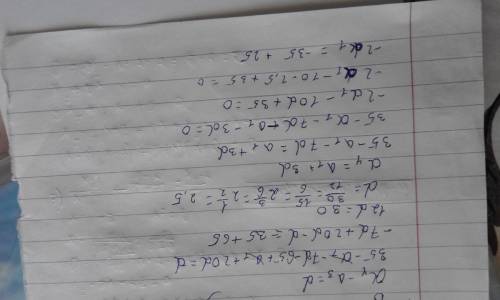 a₄ - a₃ = d
35 - a₁ - 7d - 65 + a₁ + 20d = d
-7d + 20d - d = 35 + 65
12d = 30
d = 30/12 = 15/6 = 2 3/6 = 2 1/2 = 2,5
a₄ = a₁ + 3d
35 - a₁ - 7d = a₁ + 3d
35 - a₁ - 7d - a₁ - 3d = 0
-2a₁ - 10d + 35 = 0
-2a₁ - 10·2,5 + 35 = 0
-2a₁ = -35 + 25